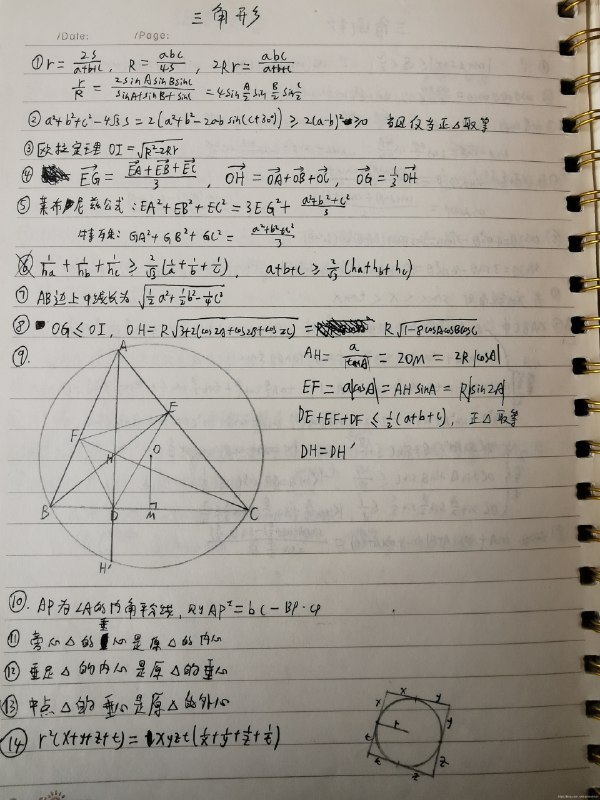 三角形
/Date: /Page:
① r = 2S/(a+b+c), R = abc/4S, 2Rr = abc/(a+b+c)
r/R = 2sinAsinBsinC/(sinA+sinB+sinC) = 4sin A/2 sin B/2 sin C/2
② a²+b²+c²-4√3S = 2(a²+b²-2ab sin(C+30°)) ≥ 2(a-b)² ≥ 0 当且仅当正△取等
③ 欧拉定理 OI = √(R²-2Rr)
④ EG = (EA+EB+EC)/3, OH = OA+OB+OC, OG = 1/3 OH
⑤ 莱布尼兹公式: EA²+EB²+EC² = 3EG² + (a²+b²+c²)/3
特殊: GA²+GB²+GC² = (a²+b²+c²)/3
⑥ 1/ha + 1/hb + 1/hc ≥ 2/√3 (1/a + 1/b + 1/c), a+b+c ≥ 2/√3 (ha+hb+hc)
⑦ AB边上中线长为 √(1/2 a² + 1/2 b² - 1/4 c²)
⑧ OG ≤ OI, OH = R√(3+2(cos2A+cos2B+cos2C)) = R√(1-8cosAcosBcosC)
⑨.
AH = a/|tanA| = 2OM = 2R|cosA|
EF = a|cosA| = AH sinA = R|sin2A|
DE+EF+DF ≤ 1/2(a+b+c), 正△取等
DH = DH'
A
E
F
H
O
B
D
M
C
H'
⑩. AP为∠A的内角平分线, 则AP² = bc - BP·CP
⑪ 旁心△的垂心是原△的内心
⑫ 垂足△的内心是原△的垂心
⑬ 中点△的垂心是原△的外心
⑭ r²(x+y+z+t) = xyzt(1/x + 1/y + 1/z + 1/t)
x x y y
r
t t z z